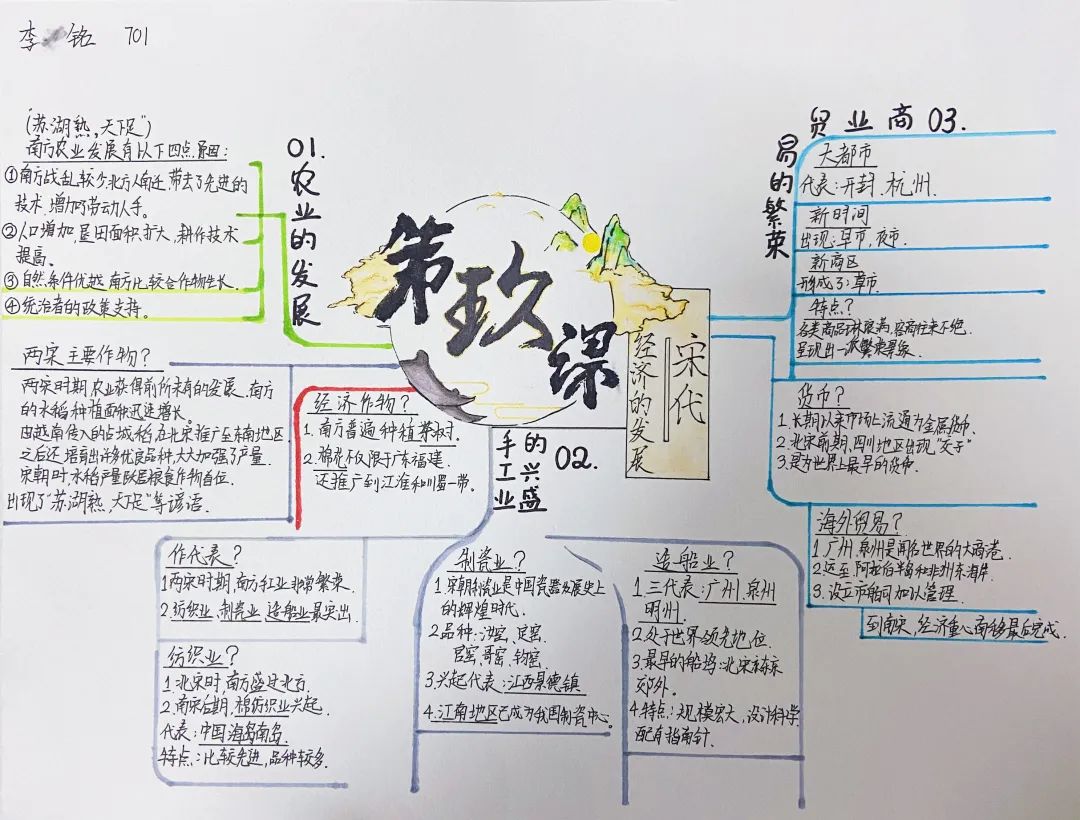 李 铭 701
第玖课
宋代
经济的发展
01.农业的发展
("苏湖熟,天下足")
南方农业发展有以下四点原因:
①南方战乱较少,北方人南迁,带去了先进的
技术,增加了劳动人手。
②人口增加,垦田面积扩大,耕作技术
提高。
③自然条件优越,南方比较合作物生长.
④统治者的政策支持。
两宋主要作物?
两宋时期,农业获得前所未有的发展.南方
的水稻种植面积迅速增长.
由越南传入的占城稻,在北宋推广至东南地区.
之后还培育出许多优良品种大大加强了产量.
宋朝时,水稻产量跃居粮食作物首位.
出现了"苏湖熟,天下足"等谚语.
经济作物?
1.南方普遍种植茶树.
2.棉花不仅限于广东福建.
还推广到江淮和川蜀一带.
02.
手工业的兴盛
作代表?
1两宋时期,南方手工业非常繁荣
2.纺织业、制瓷业、造船业最突出.
纺织业?
1.北宋时,南方盛过北方.
2.南宋后期,棉纺织业兴起.
代表:中国海南岛.
特点:比较先进,品种较多.
制瓷业?
1.宋朝制瓷业是中国瓷器发展史上
的辉煌时代.
2.品种:汝窑、定窑.
官窑、哥窑、钧窑.
3.兴起代表:江西景德镇
4.江南地区已成为我国制瓷中心。
造船业?
1.三代表:广州、泉州
明州.
2.处于世界领先地位.
3.最早的船坞:北宋东京
郊外。
4.特点:规模宏大,设计科学
配有指南针.
03.
商业贸易的繁荣
大都市
代表:开封、杭州.
新时间
出现:早市,夜市.
新商区
形成了:草市.
特点?
各类商品琳琅满,客商往来不绝.
呈现出一派繁荣景象.
货币?
1.长期以来市场上流通为金属货币.
2.北宋前期,四川地区出现"交子"
3.是为世界上最早的货币.
海外贸易?
1.广州、泉州是闻名世界的大商港.
2.远至阿拉伯半岛和非州东海岸.
3.设立市舶司加以管理.
到南宋,经济重心南移最后完成.